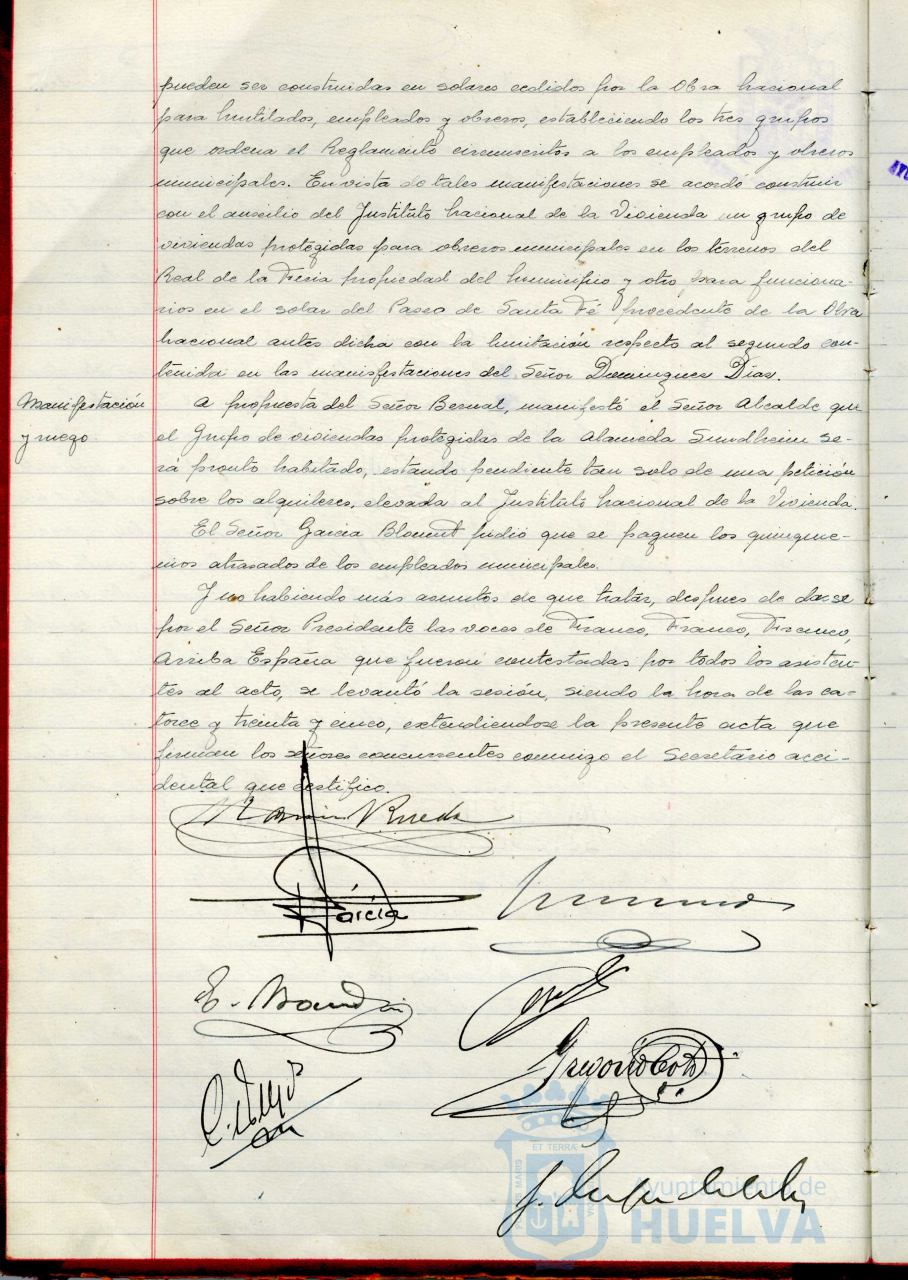 pueden ser construidas en solares cedidos por la Obra Nacional
para Mutilados, empleados y obreros, estableciendo los tres grupos
que ordena el Reglamento circunscritos a los empleados y obreros
municipales. En vista de tales manifestaciones se acordó construir
con el auxilio del Instituto Nacional de la Vivienda un grupo de
viviendas protegidas para obreros municipales en los terrenos del
Real de la Feria propiedad del Municipio y otro para funciona-
rios en el solar del Paseo de Santa Fé procedente de la Obra
Nacional antes dicha con la limitación respecto al segundo con-
tenida en las manisfestaciones del Señor Dominguez Díaz.
Manifestación
y ruego.
A propuesta del Señor Bernal, manifestó el Señor Alcalde que
el Grupo de viviendas protegidas de la Alameda Sundheim se-
rá pronto habitado, estando pendiente tan solo de una petición
sobre los alquileres, elevada al Instituto Nacional de la Vivienda.
El Señor Garcia Blount pidió que se paguen los quinque-
nios atrasados de los empleados municipales.
Y no habiendo más asuntos de que tratar, despues de darse
por el Señor Presidente las voces de Franco, Franco, Franco,
Arriba España que fueron contestadas por todos los asisten-
tes al acto, se levantó la sesión, siendo la hora de las ca-
torce y treinta y cinco, extendiendose la presente acta que
firman los señores concurrentes conmigo el Secretario acci-
dental que certifico.
Rueda
García
E.
Gregorio
ET TERRÆ
Ayuntamiento de
HUELVA